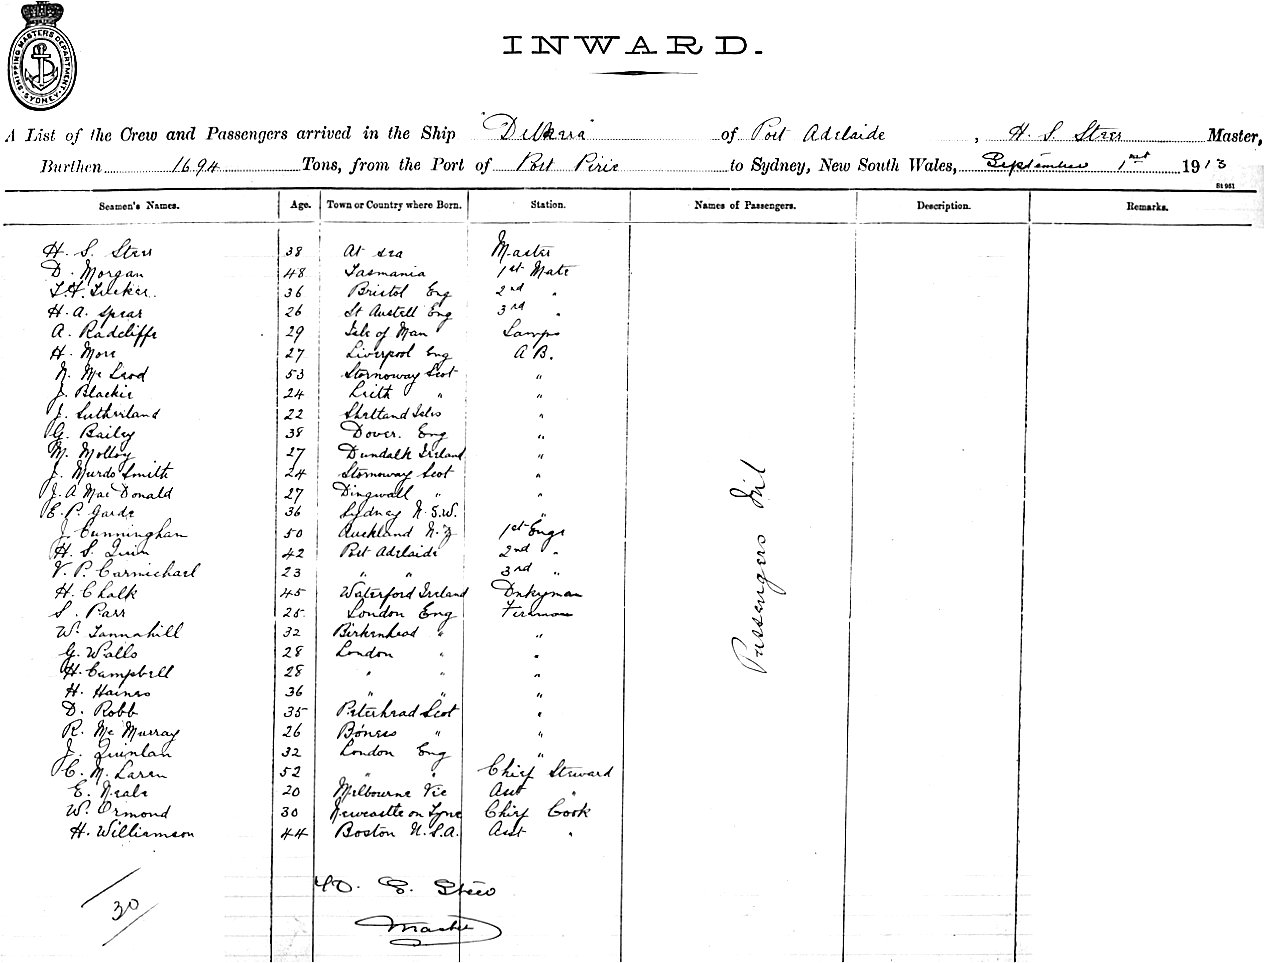 SHIPPING MASTERS DEPARTMENT
SYDNEY
INWARD.
A List of the Crew and Passengers arrived in the Ship of Port Adelaide , H. S. Steer Master,
Burthen 1694 Tons, from the Port of Port Pirie to Sydney, New South Wales, September 1st 1913
St 961
Seamen's Names. Age. Town or Country where Born. Station. Names of Passengers. Description. Remarks.
H. S. Steer 38 At sea Master
D. Morgan 48 Tasmania 1st Mate
36 Bristol Eng 2nd "
H. A. Spear 26 St Austell Eng 3rd "
A. Radcliffe 29 Isle of Man Lamps
H. 27 Liverpool Eng A B.
N. Mc Leod 53 Stornoway Scot "
J. Blackie 24 Leith " "
J. Sutherland 22 Shetland Isles "
G. Bailey 38 Dover. Eng "
M. Molloy 27 Dundalk Ireland "
J. Murdo Smith 24 Stornoway Scot "
J. A MacDonald 27 Dingwall " "
E. P. Garde 36 Sydney N. S. W. "
J. Cunningham 50 Auckland N. Z 1st Engr
H. S. 42 Port Adelaide 2nd "
V. P. Carmichael 23 " " 3rd "
H. Chalk 45 Waterford Ireland Dnkyman
S. Parr 25 London Eng Fireman
W. Tannahill 32 Birkenhead " "
G. Walls 28 London " "
H. Campbell 28 " " "
H. Haines 36 " " "
D. Robb 35 Peterhead Scot "
R. Mc Murray 26 Bo'ness " "
J. Quinlan 32 London Eng "
C. M. Laren 52 " " Chief Steward
E. Neale 20 Melbourne Vic Asst "
W. Ormond 30 Newcastle on Tyne Chief Cook
H. Williamson 44 Boston U. S. A. Asst "
Passengers Nil
Steer
Master
30